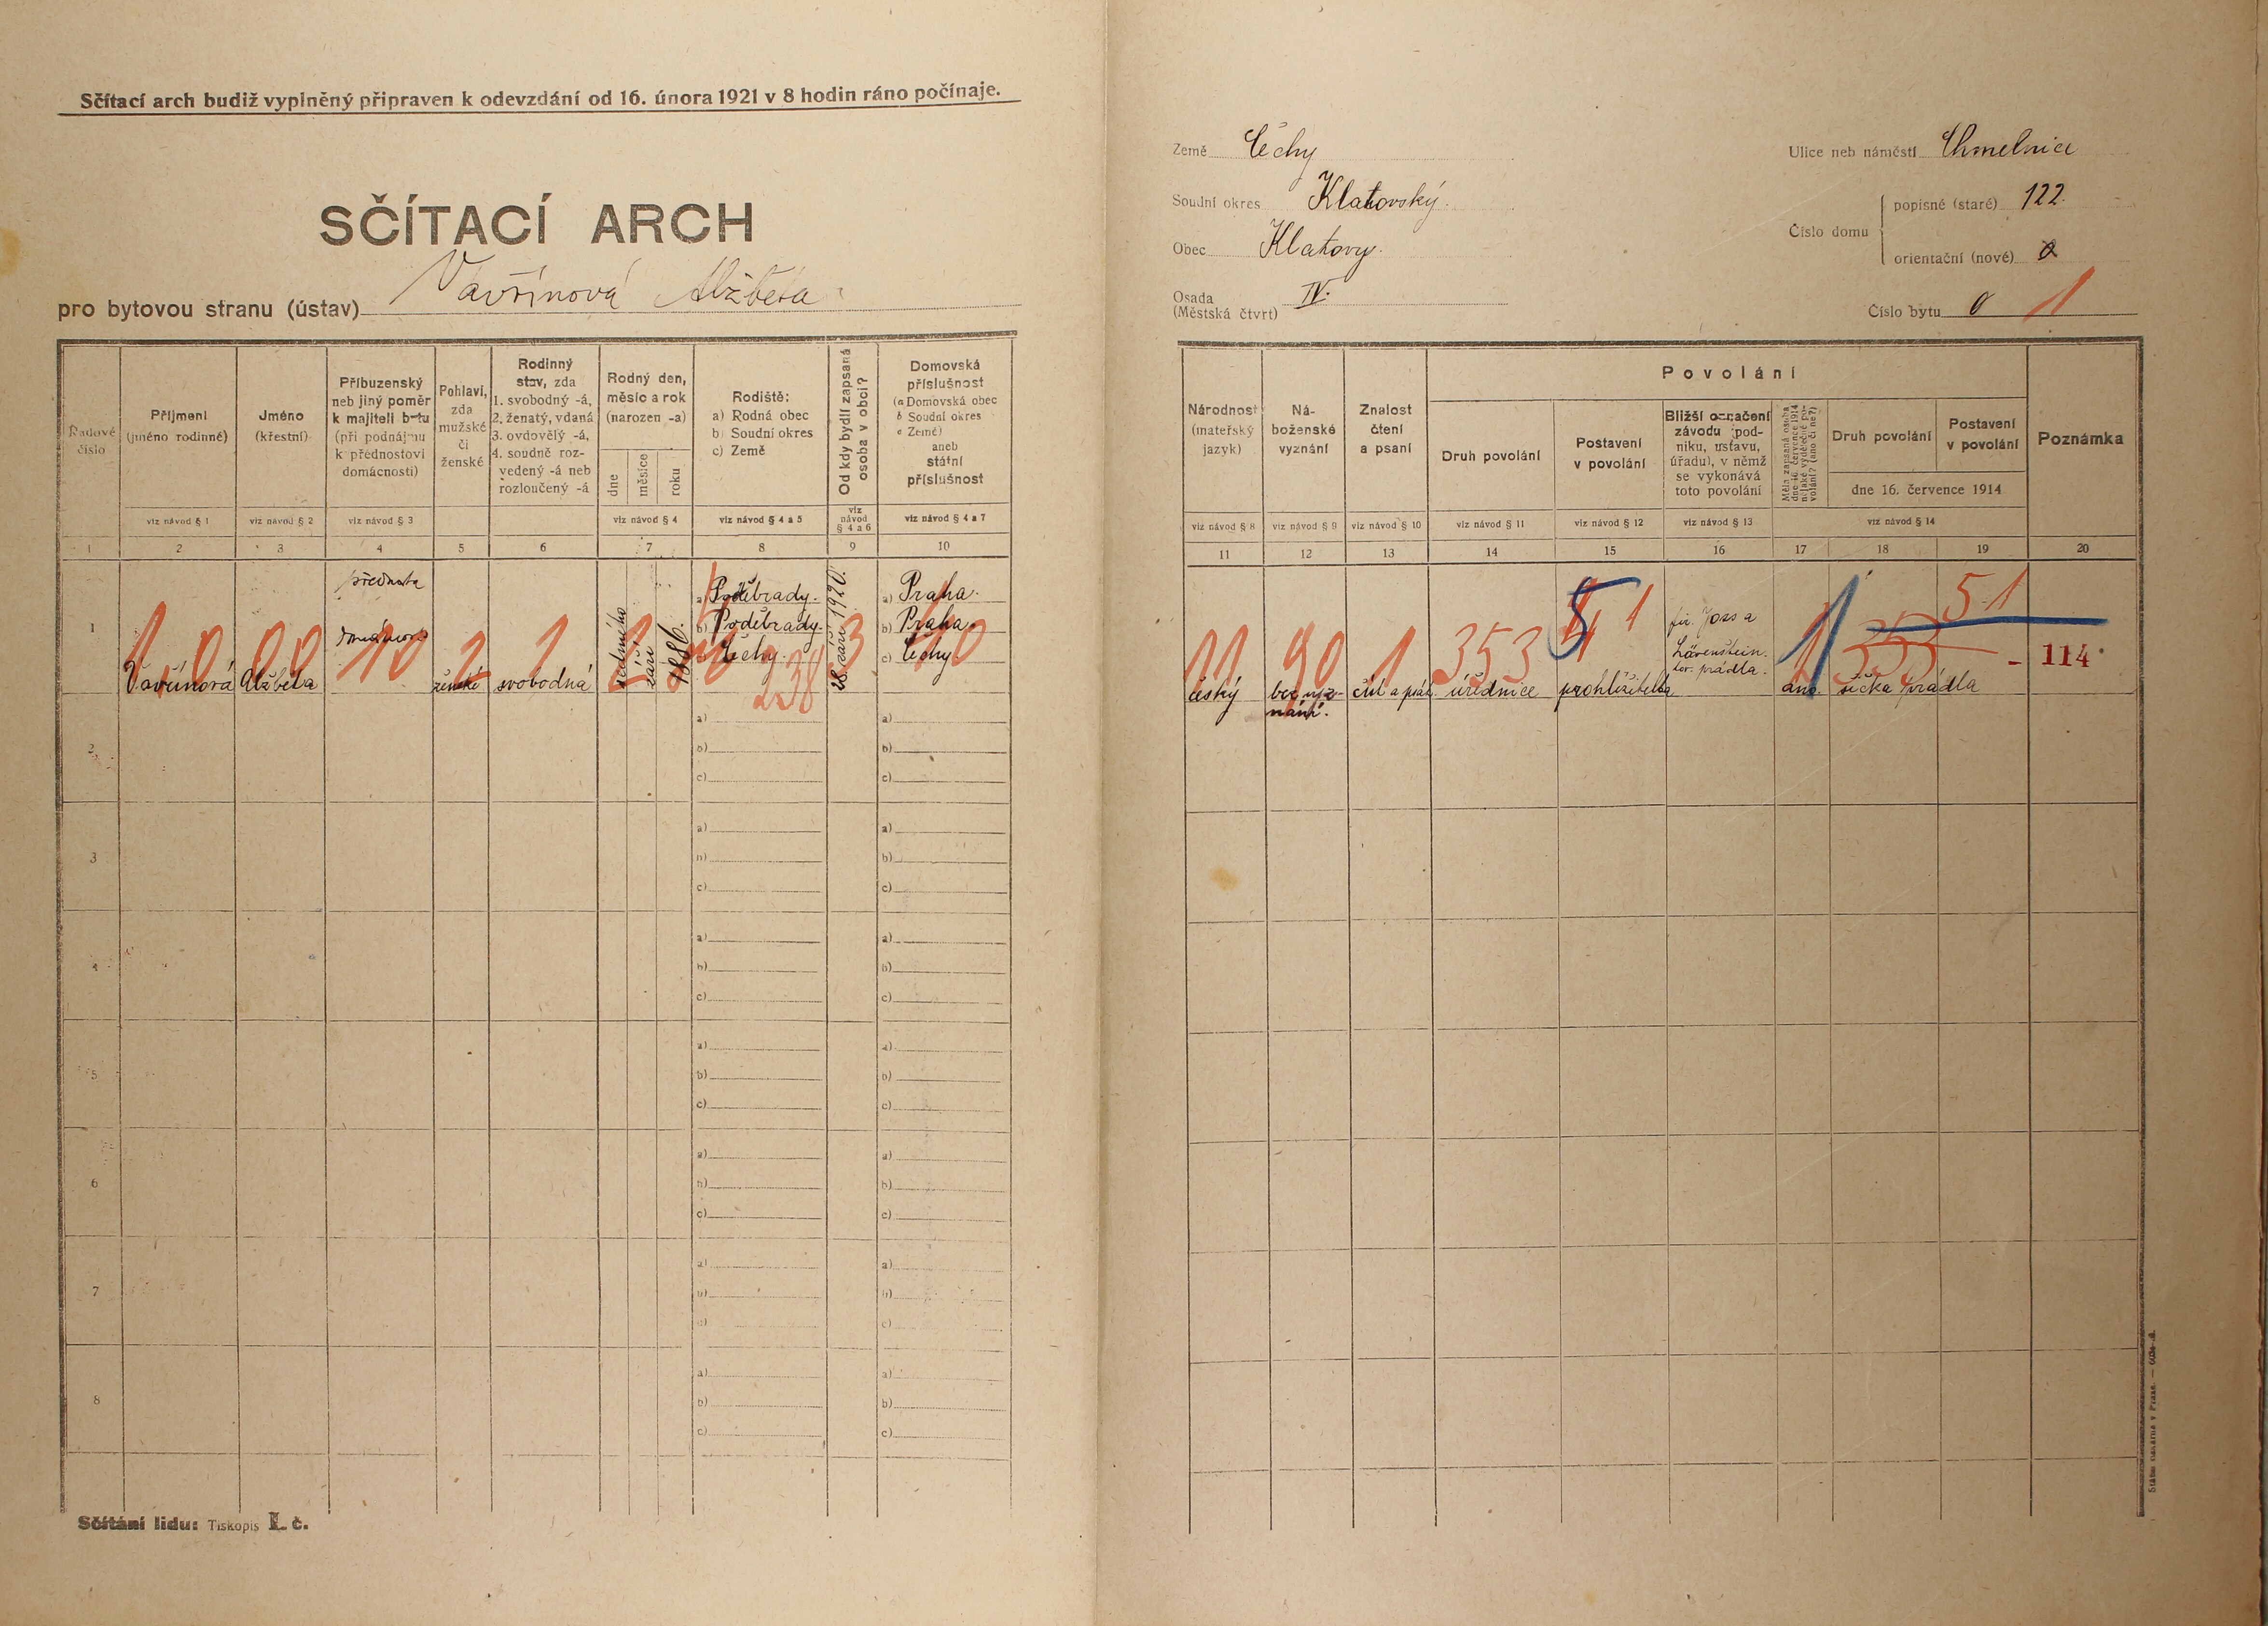 Sčítací arch budiž vyplněný připraven k odevzdání od 16. února 1921 v 8 hodin ráno počínaje.
SČÍTACÍ ARCH
pro bytovou stranu (ústav) Vavřínová Alžběta
Řadové číslo
Příjmení
(jméno rodinné)
viz návod § 1
Jméno
(křestní)
viz návod § 2
Příbuzenský
neb jiný poměr
k majiteli bytu
(při podnájmu
k přednostovi
domácnosti)
viz návod § 3
Pohlaví,
zda
mužské
či
ženské
Rodinný
stav, zda
1. svobodný -á,
2. ženatý, vdaná
3. ovdovělý -á,
4. soudně roz-
vedený -á neb
rozloučený -á
Rodný den,
měsíc a rok
(narozen -a)
dne
měsíce
roku
viz návod § 4
Rodiště:
a) Rodná obec
b) Soudní okres
c) Země
viz návod § 4 a 5
Od kdy bydlí zapsaná
osoba v obci?
viz
návod
§ 4 a 6
Domovská
příslušnost
(a Domovská obec
b Soudní okres
c Země)
aneb
státní
příslušnost
viz návod § 4 a 7
1 2 3 4 5 6 7 8 9 10
1
Vavřínová
Alžběta
přednosta
ženské
svobodná
sedmého
září
1886.
a) Poděbrady.
b) Poděbrady.
c) Čechy.
28. září 1920.
a) Praha.
b) Praha.
c) Čechy
1 0
0 0
10
2
1
238
3
2
a)
b)
c)
a)
b)
c)
3
a)
b)
c)
a)
b)
c)
4
a)
b)
c)
a)
b)
c)
5
a)
b)
c)
a)
b)
c)
6
a)
b)
c)
a)
b)
c)
7
a)
b)
c)
a)
b)
c)
8
a)
b)
c)
a)
b)
c)
Sčítání lidu: Tiskopis I. č.
Země Čechy
Soudní okres Klatovský.
Obec Klatovy.
Osada
(Městská čtvrt) IV.
Ulice neb náměstí Chmelnice
Číslo domu
popisné (staré) 122.
orientační (nové)
Číslo bytu 0 1
Národnost
(mateřský
jazyk)
viz návod § 8
Ná-
boženské
vyznání
viz návod § 9
Znalost
čtení
a psaní
viz návod § 10
Povolání
Druh povolání
viz návod § 11
Postavení
v povolání
viz návod § 12
Bližší označení
závodu (pod-
niku, ustavu,
úřadu), v němž
se vykonává
toto povolání
viz návod § 13
Měla zapsaná osoba
dne 16. července 1914
nějaké výdělečné po-
volání? (ano či ne?)
Druh povolání
Postavení
v povolání
dne 16. července 1914
viz návod § 14
Poznámka
11 12 13 14 15 16 17 18 19 20
český
bez vyz-
nání.
čísti a psáti
úřednice
prohlížitelka
fir. Joss a
Lövenstein.
tov. prádla.
ano.
šička prádla
11
90
1
353
5
1
1
353
51
- 114
Státní tiskárna v Praze. —